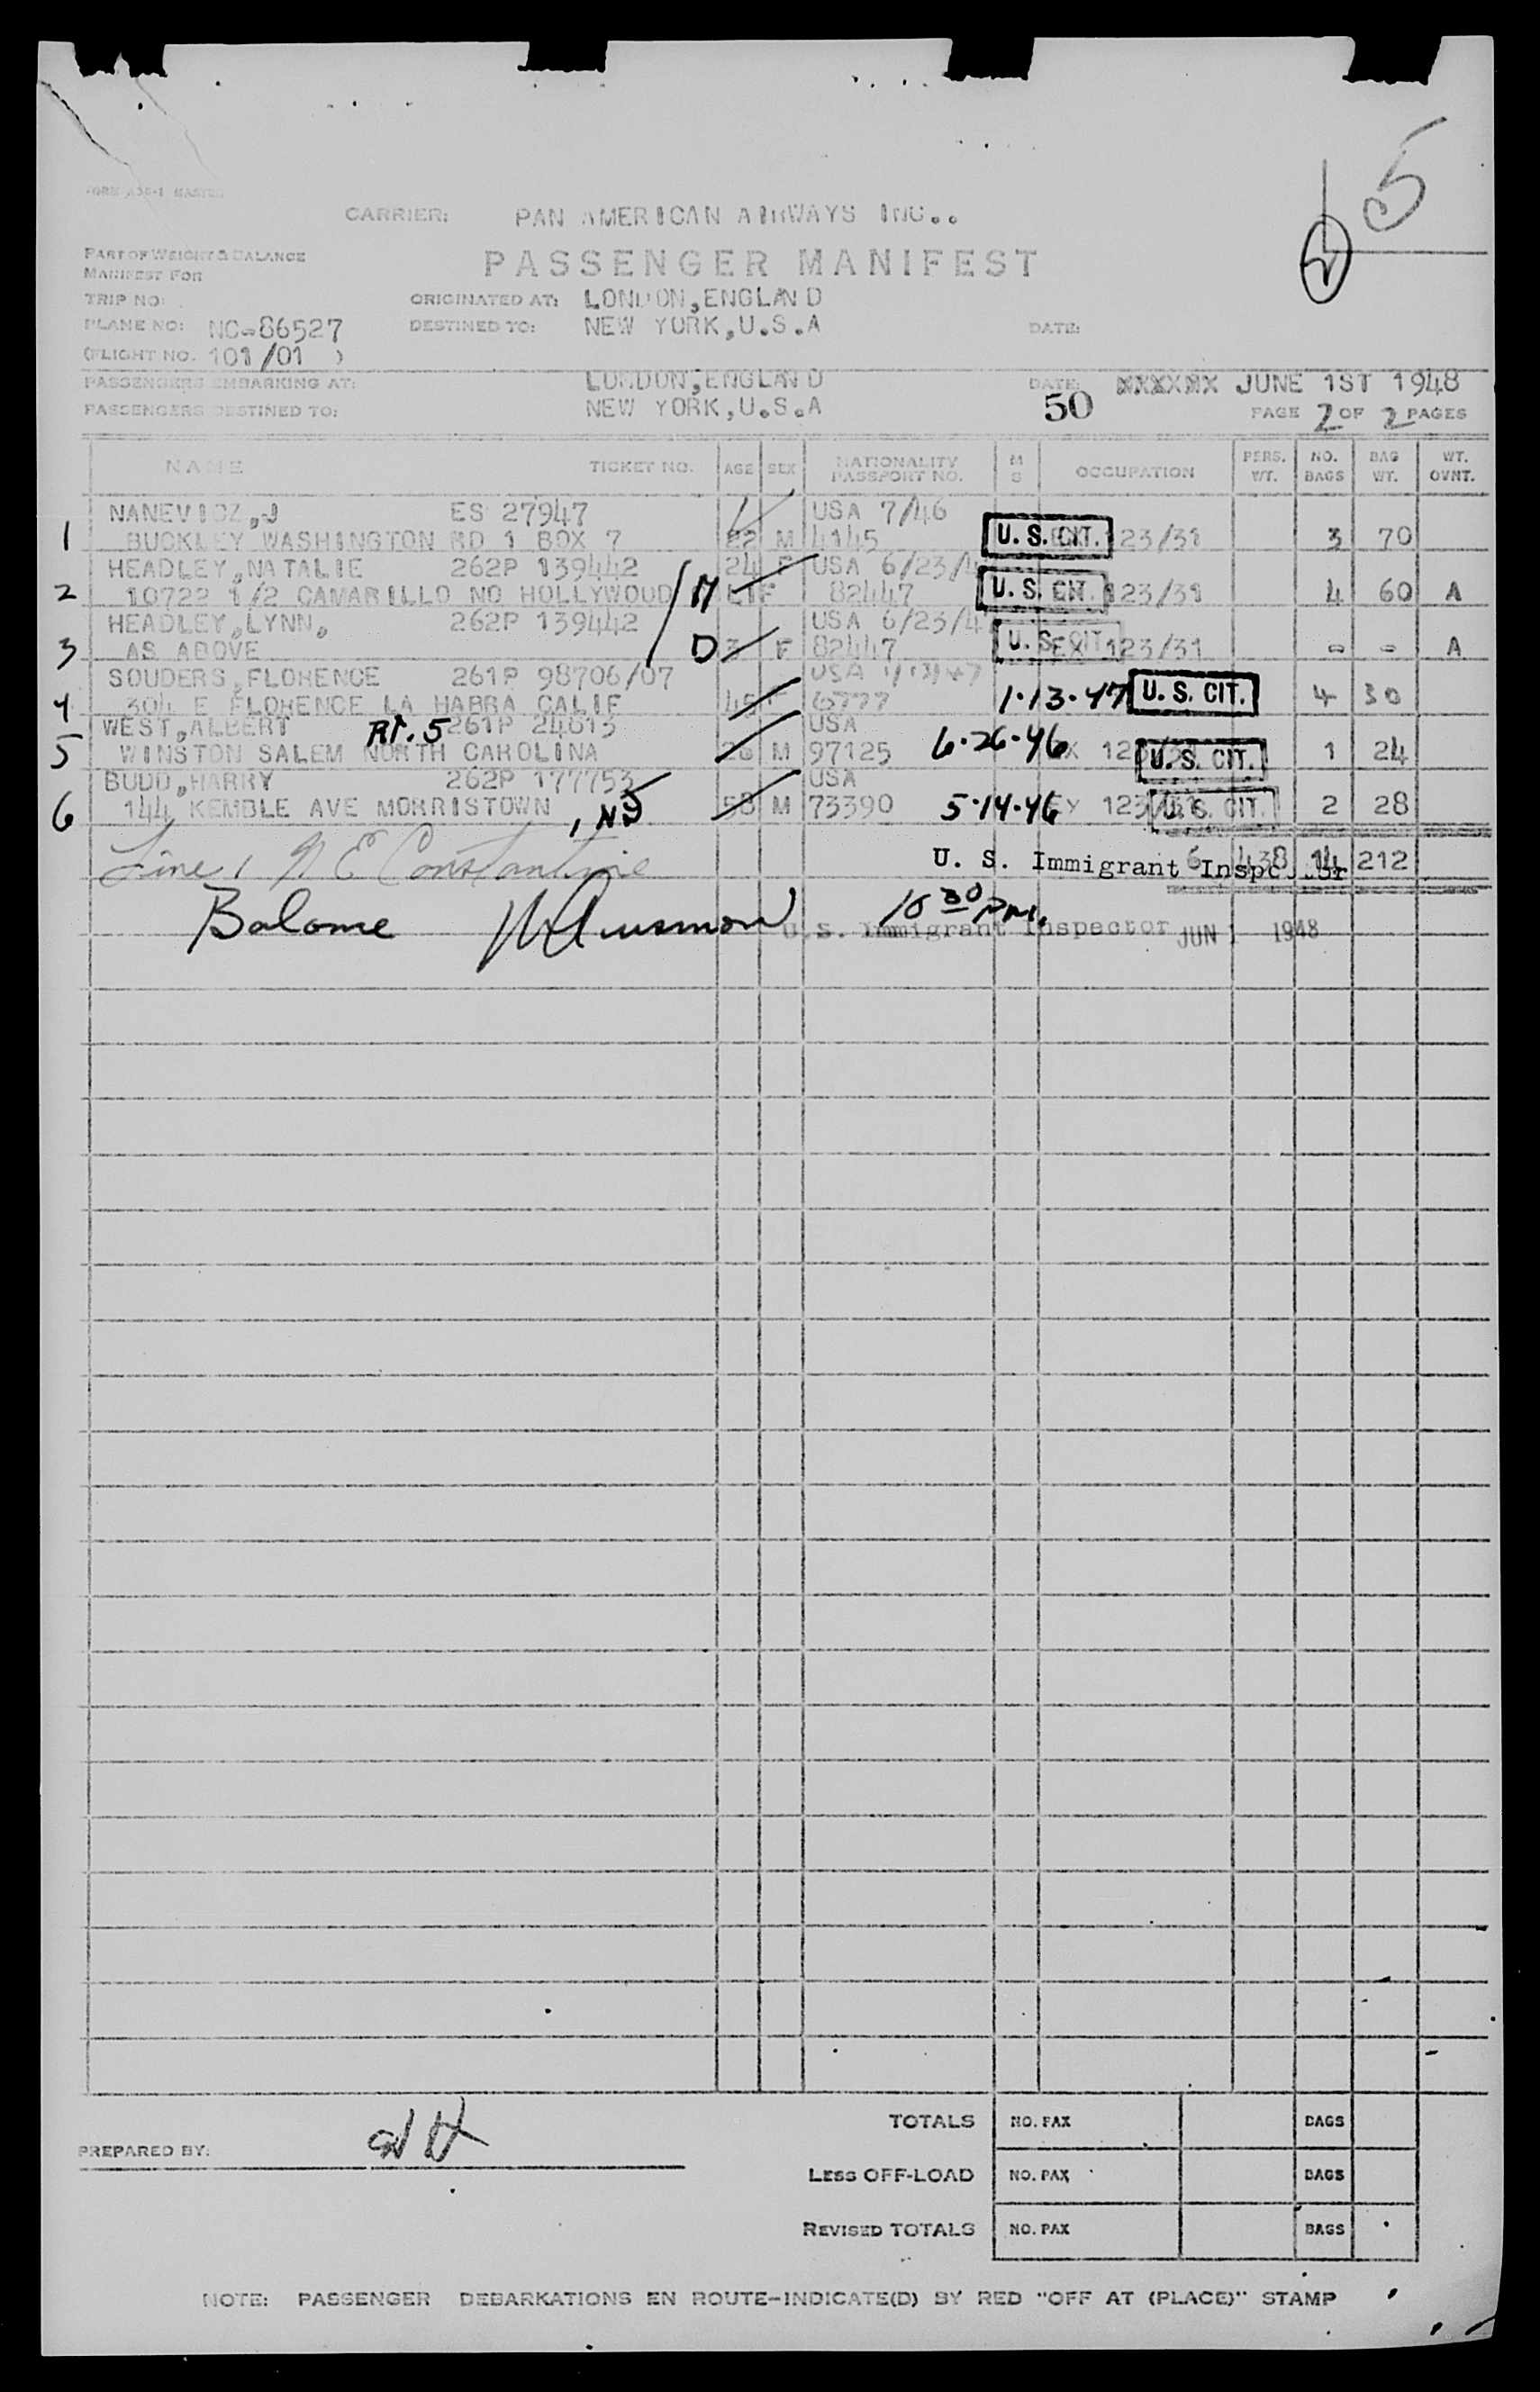 5
CARRIER: PAN AMERICAN AIRWAYS INC..
PART OF WEIGHT & BALANCE
MANIFEST FOR
PASSENGER MANIFEST
TRIP NO: ORIGINATED AT: LONDON,ENGLAND
PLANE NO: NC-86527 DESTINED TO: NEW YORK,U.S.A DATE:
(FLIGHT NO. 101/01 )
PASSENGERS EMBARKING AT: LONDON,ENGLAND DATE: JUNE 1ST 1948
PASSENGERS DESTINED TO: NEW YORK,U.S.A 50 PAGE 2 OF 2 PAGES
NAME TICKET NO. AGE SEX NATIONALITY PASSPORT NO. M S OCCUPATION PERS. WT. NO. BAGS BAG WT. WT. OVNT.
NANEVICZ,J ES 27947 USA 7/46
1 BUCKLEY WASHINGTON RD 1 BOX 7 22 M 4145 U. S. CIT. 123/31 3 70
HEADLEY,NATALIE 262P 139442 24 F USA 6/23/4
2 10722 1/2 CAMARILLO NO HOLLYWOOD M 82447 U. S. CIT. 123/31 4 60 A
HEADLEY,LYNN, 262P 139442 USA 6/23/4
3 AS ABOVE D 3 F 82447 U. S. CIT. EX 123/31 - - A
SOUDERS,FLORENCE 261P 98706/07 USA
4 304 E FLORENCE LA HABRA CALIF 45 F 6777 1·13·47 U. S. CIT. 4 30
WEST,ALBERT Rt. 5 261P 24613 USA
5 WINSTON SALEM NORTH CAROLINA 26 M 97125 6·26·46 U. S. CIT. 1 24
BUDD,HARRY 262P 177753 USA
6 144 KEMBLE AVE MORRISTOWN , NJ 58 M 73390 5·14·46 U. S. CIT. 2 28
Line 1 N E Constantine U. S. Immigrant Inspector 6 438 14 212
Balome 10 30 pm.
U. S. Immigrant Inspector JUN 1 1948
TOTALS NO. PAX BAGS
PREPARED BY:
LESS OFF-LOAD NO. PAX BAGS
REVISED TOTALS NO. PAX BAGS
NOTE: PASSENGER DEBARKATIONS EN ROUTE-INDICATE(D) BY RED "OFF AT (PLACE)" STAMP